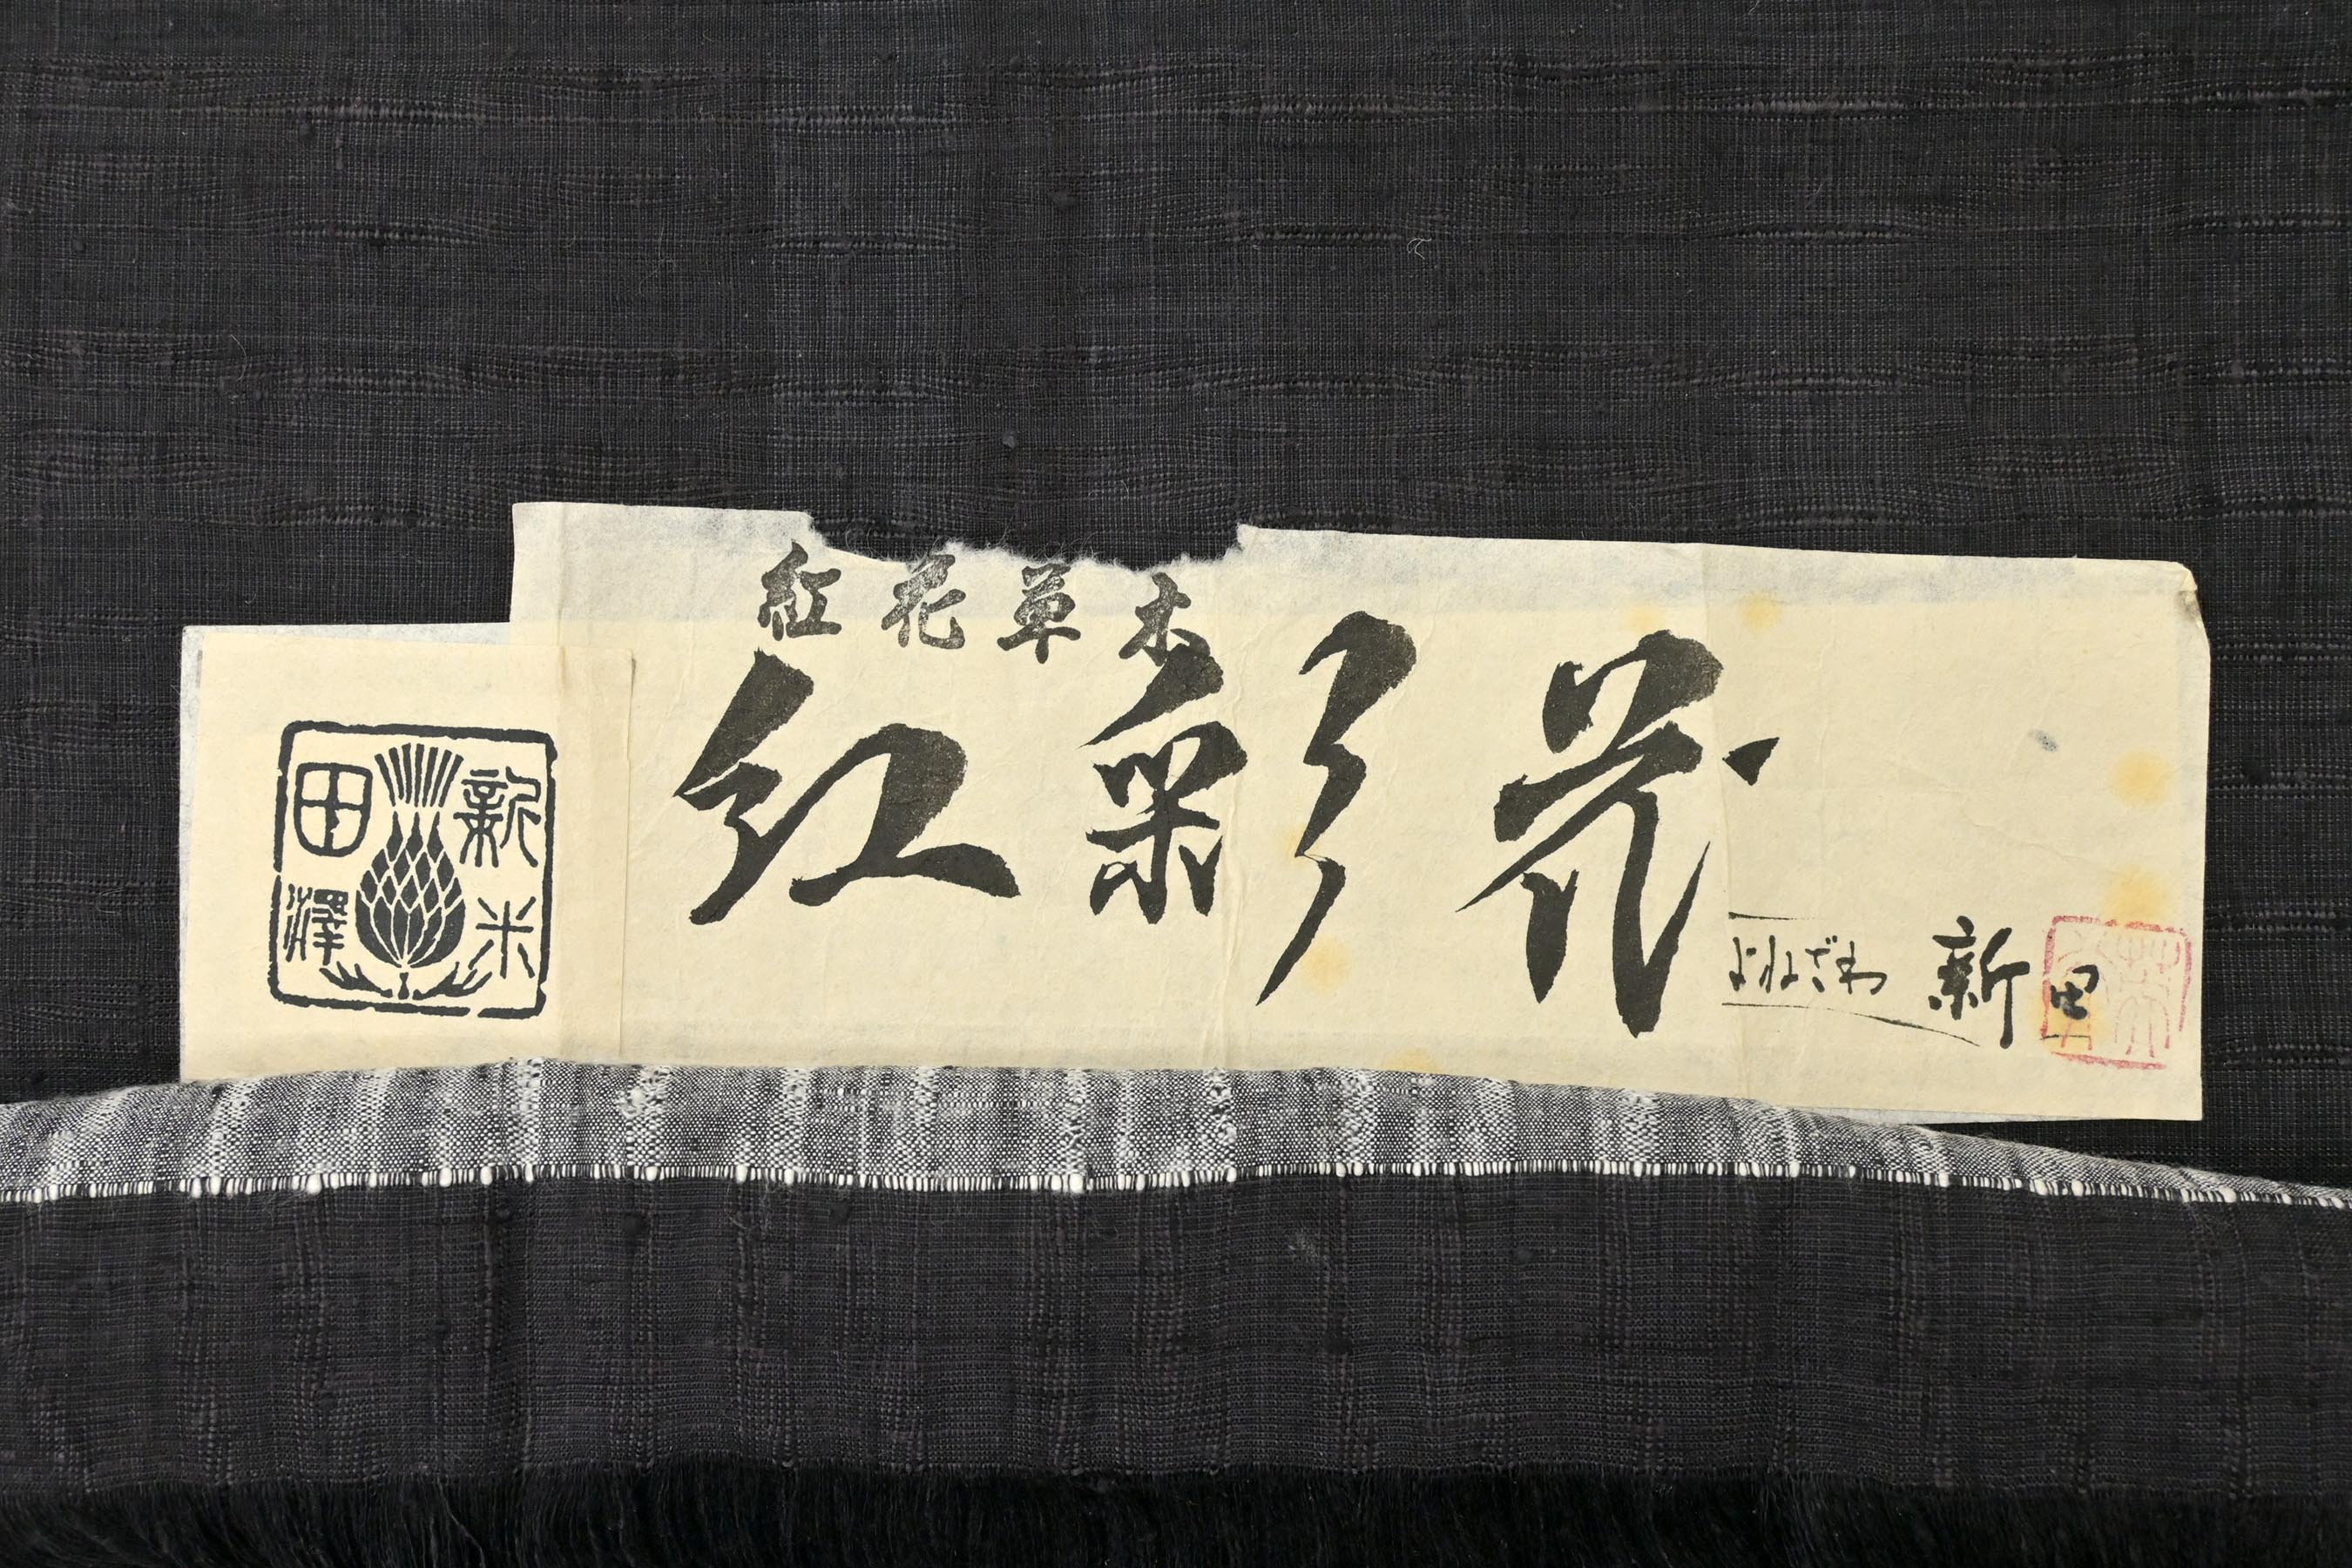 紅花草木
紅彩花
よねざわ 新田
新田
米澤